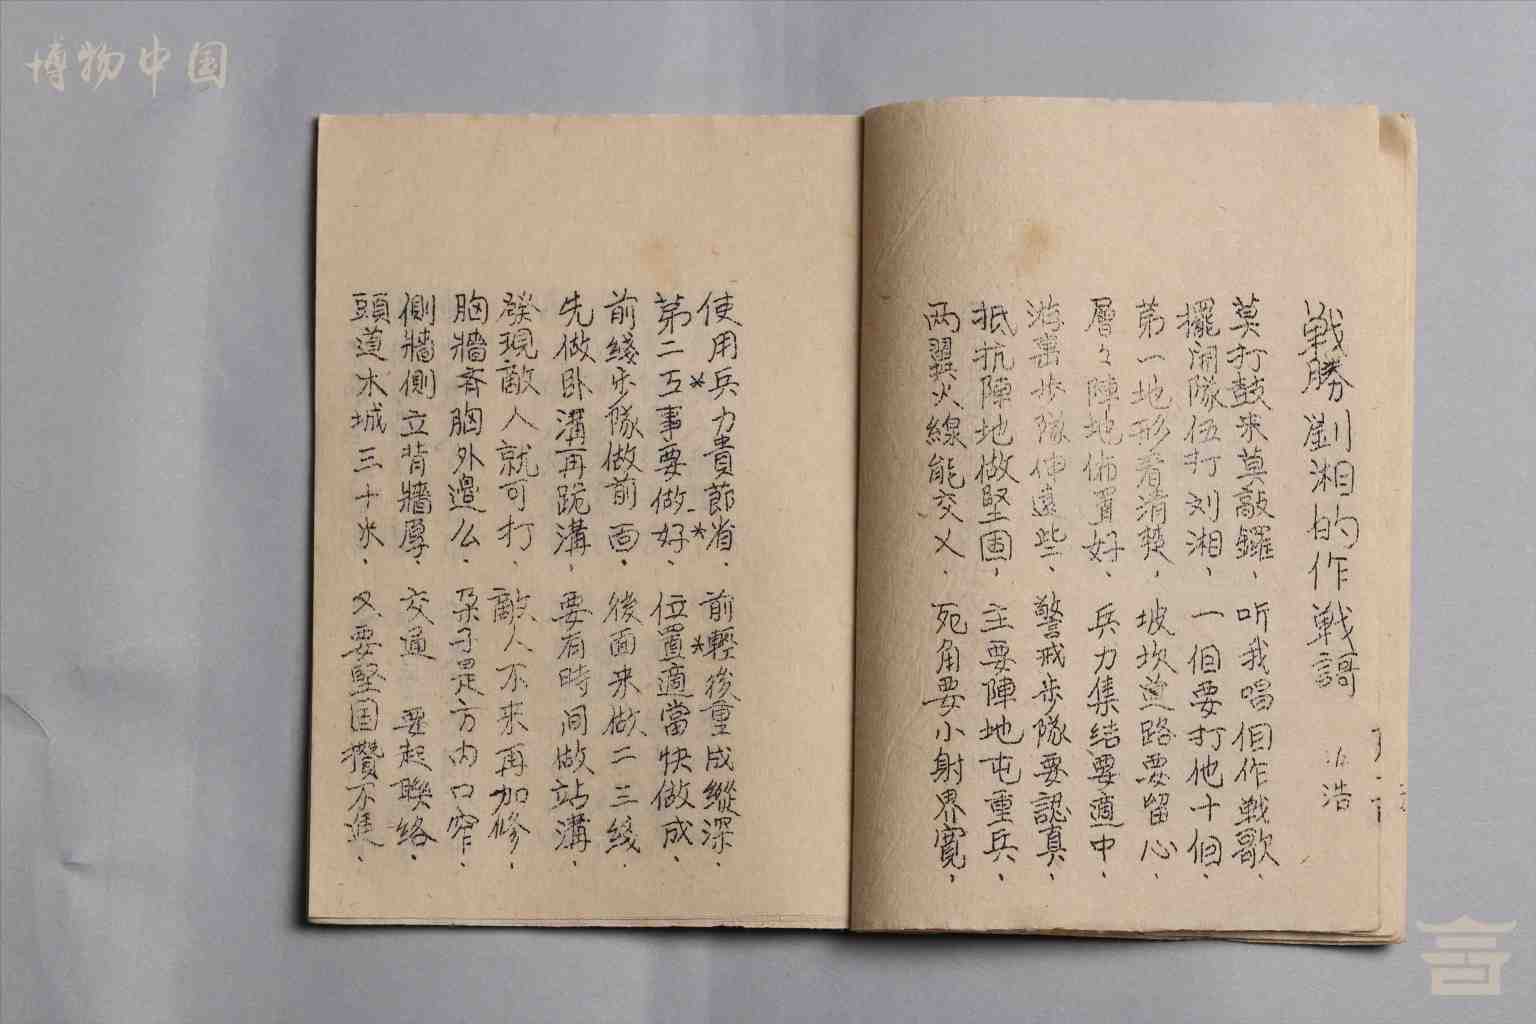 博物中国
戰勝劉湘的作戰謌
浩
莫打鼓来莫敲鑼、听我唱個作戰歌、
擺開隊伍打刘湘、一個要打他十個、
第一地形看清楚，坡坎道路要留心、
層々陣地佈置好、兵力集結要適中、
游擊步隊伸遠些、警戒步隊要認真、
抵抗陣地做堅固，主要陣地屯重兵、
两翼火線能交乂、死角要小射界寬，
使用兵力貴節省、前輕後重成縱深、
第二工事要做好、位置適當快做成、
前綫步隊做前面、後面来做二三綫、
先做卧溝再跪溝、要有時间做站溝、
發現敵人就可打、敵人不来再加修、
胸牆斉胸外邊么、朶子是方内口窄、
側牆側立背牆厚、交通要起聯络、
頭道木城三十米、又要堅固攢不進、